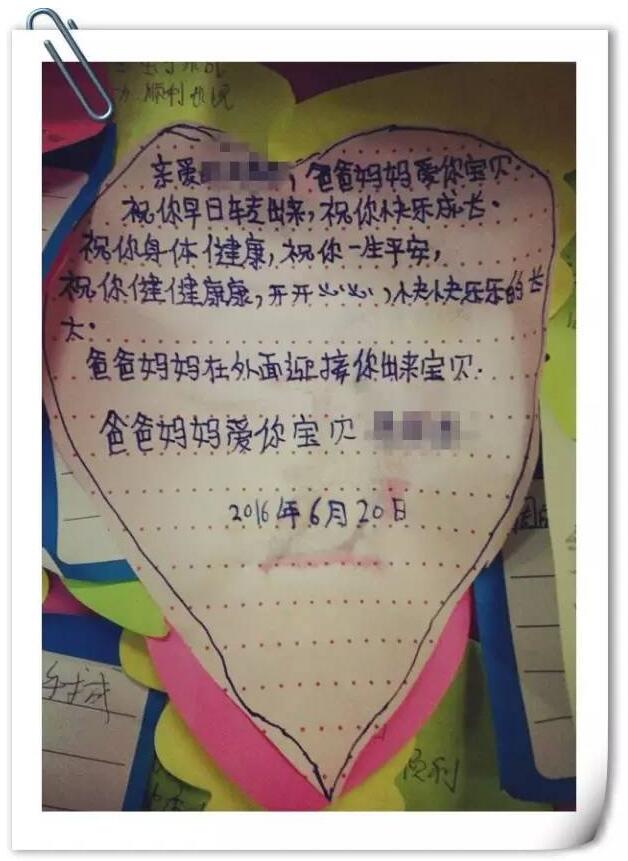 顺利
亲爱，爸爸妈妈爱你宝贝.
祝你早日转走出来，祝你快乐成长.
祝你身体健康，祝你一生平安，
祝你健健康康，开开心心，快快乐乐的长
大.
爸爸妈妈在外面迎接你出来宝贝.
爸爸妈妈爱你宝贝
2016年6月20日
顺利